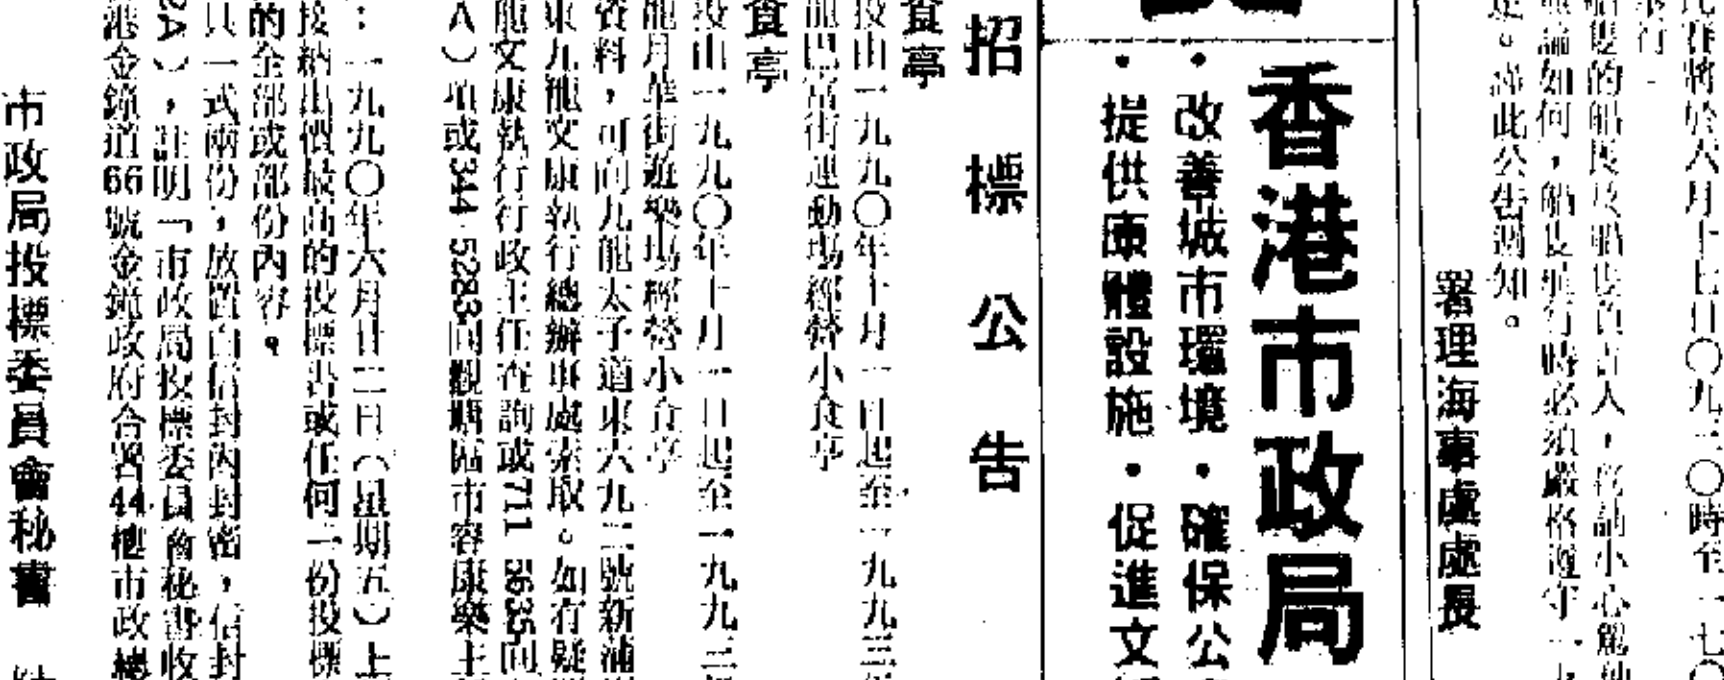 比賽將於六月十七日〇九三〇時至一七〇
舉行。
船隻的船長及船隻負責人，務請小心駕駛
無論如何，船隻航行時必須嚴格遵守一九
定。謹此公告週知。
署理海事處處長
香港市政局
・改善城市環境・確保公
・提供康體設施・促進文
招標公告
食亭
投由一九九〇年十月一日起至一九九三年
龍巴富街運動場經營小食亭
食亭
投由一九九〇年十月一日起至一九九三
龍月華街遊樂場經營小食亭
資料，可向九龍太子道東六九二號新蒲
東九龍文康執行總辦事處索取。如有疑
龍文康執行行政主任查詢或711 5635向
A）項或344 5283向觀塘區市容康樂主
：一九九〇年六月廿二日（星期五）上
接納出價最高的投標書或任何一份投標
的全部或部份內容。
具一式兩份，放置白信封內封密，信封
2A），註明「市政局投標委員會秘書收
港金鐘道66號金鐘政府合署44樓市政總
市政局投標委員會秘書